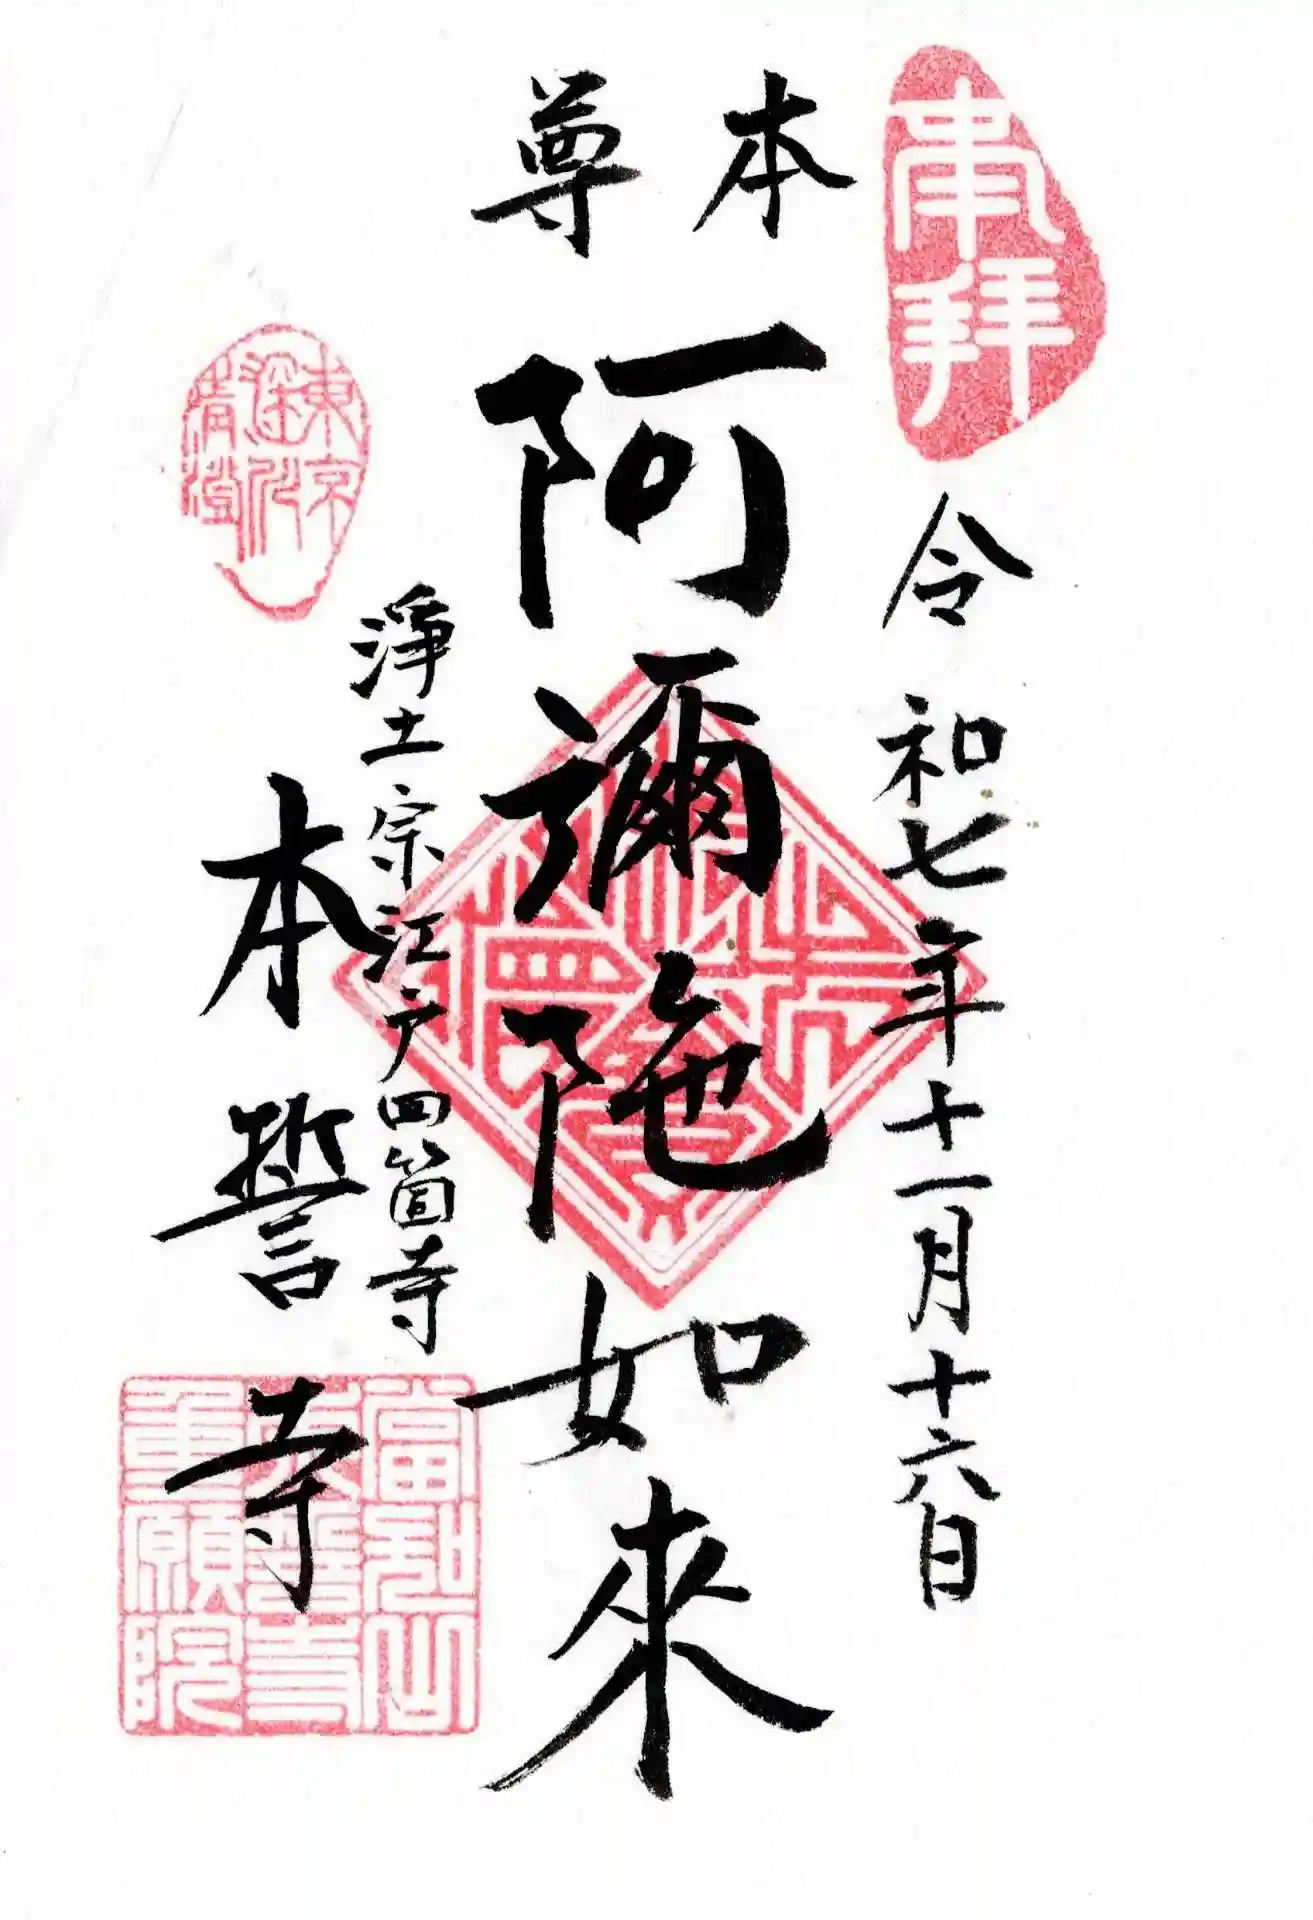 奉拝
令和七年十一月十六日
本尊
阿彌陀如來
東京
深川
清澄
淨土宗江戸四箇寺
本誓寺
當知山
重願院